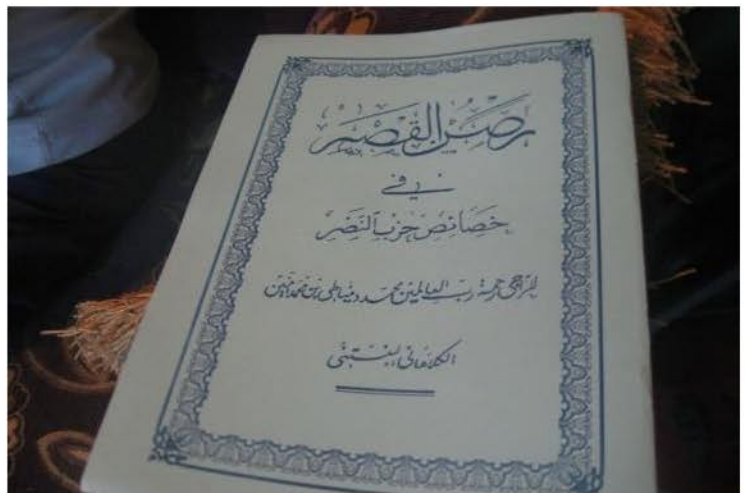 رصين القصر
في
خصائص حزب النصر
للراجي رحمة رب العالمين محمد دمياطي بن محمد أمين
البنتني